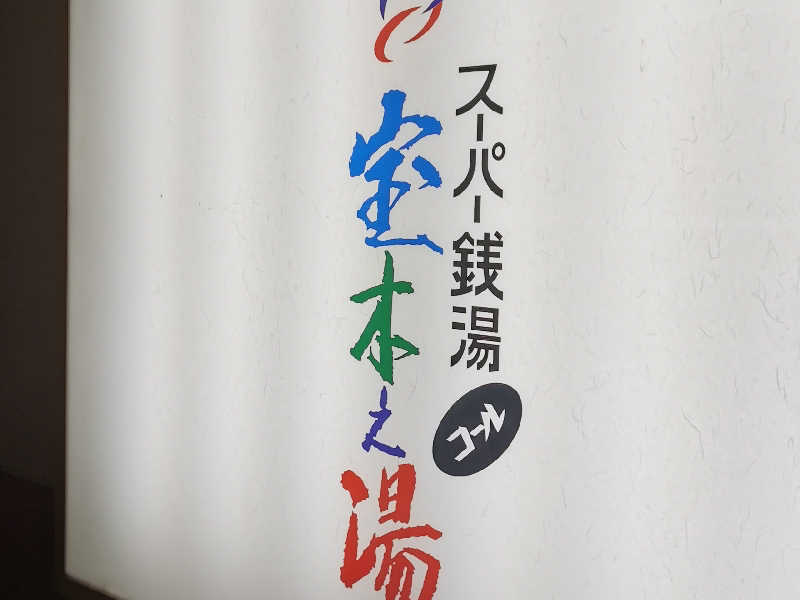 スーパー銭湯
コール
宝木之湯